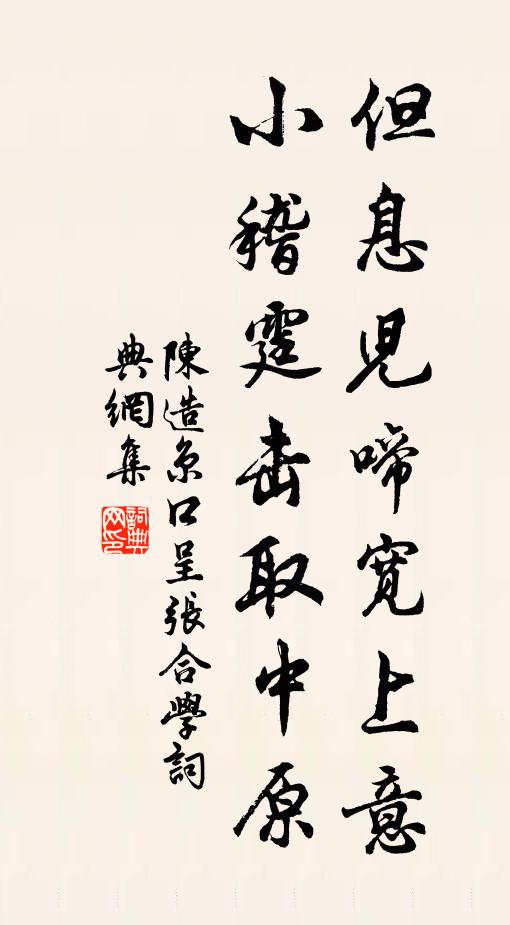 但息児啼宽上意
小稽霆击取中原
陳造京口呈張合學詞
典網集
詞典
网印